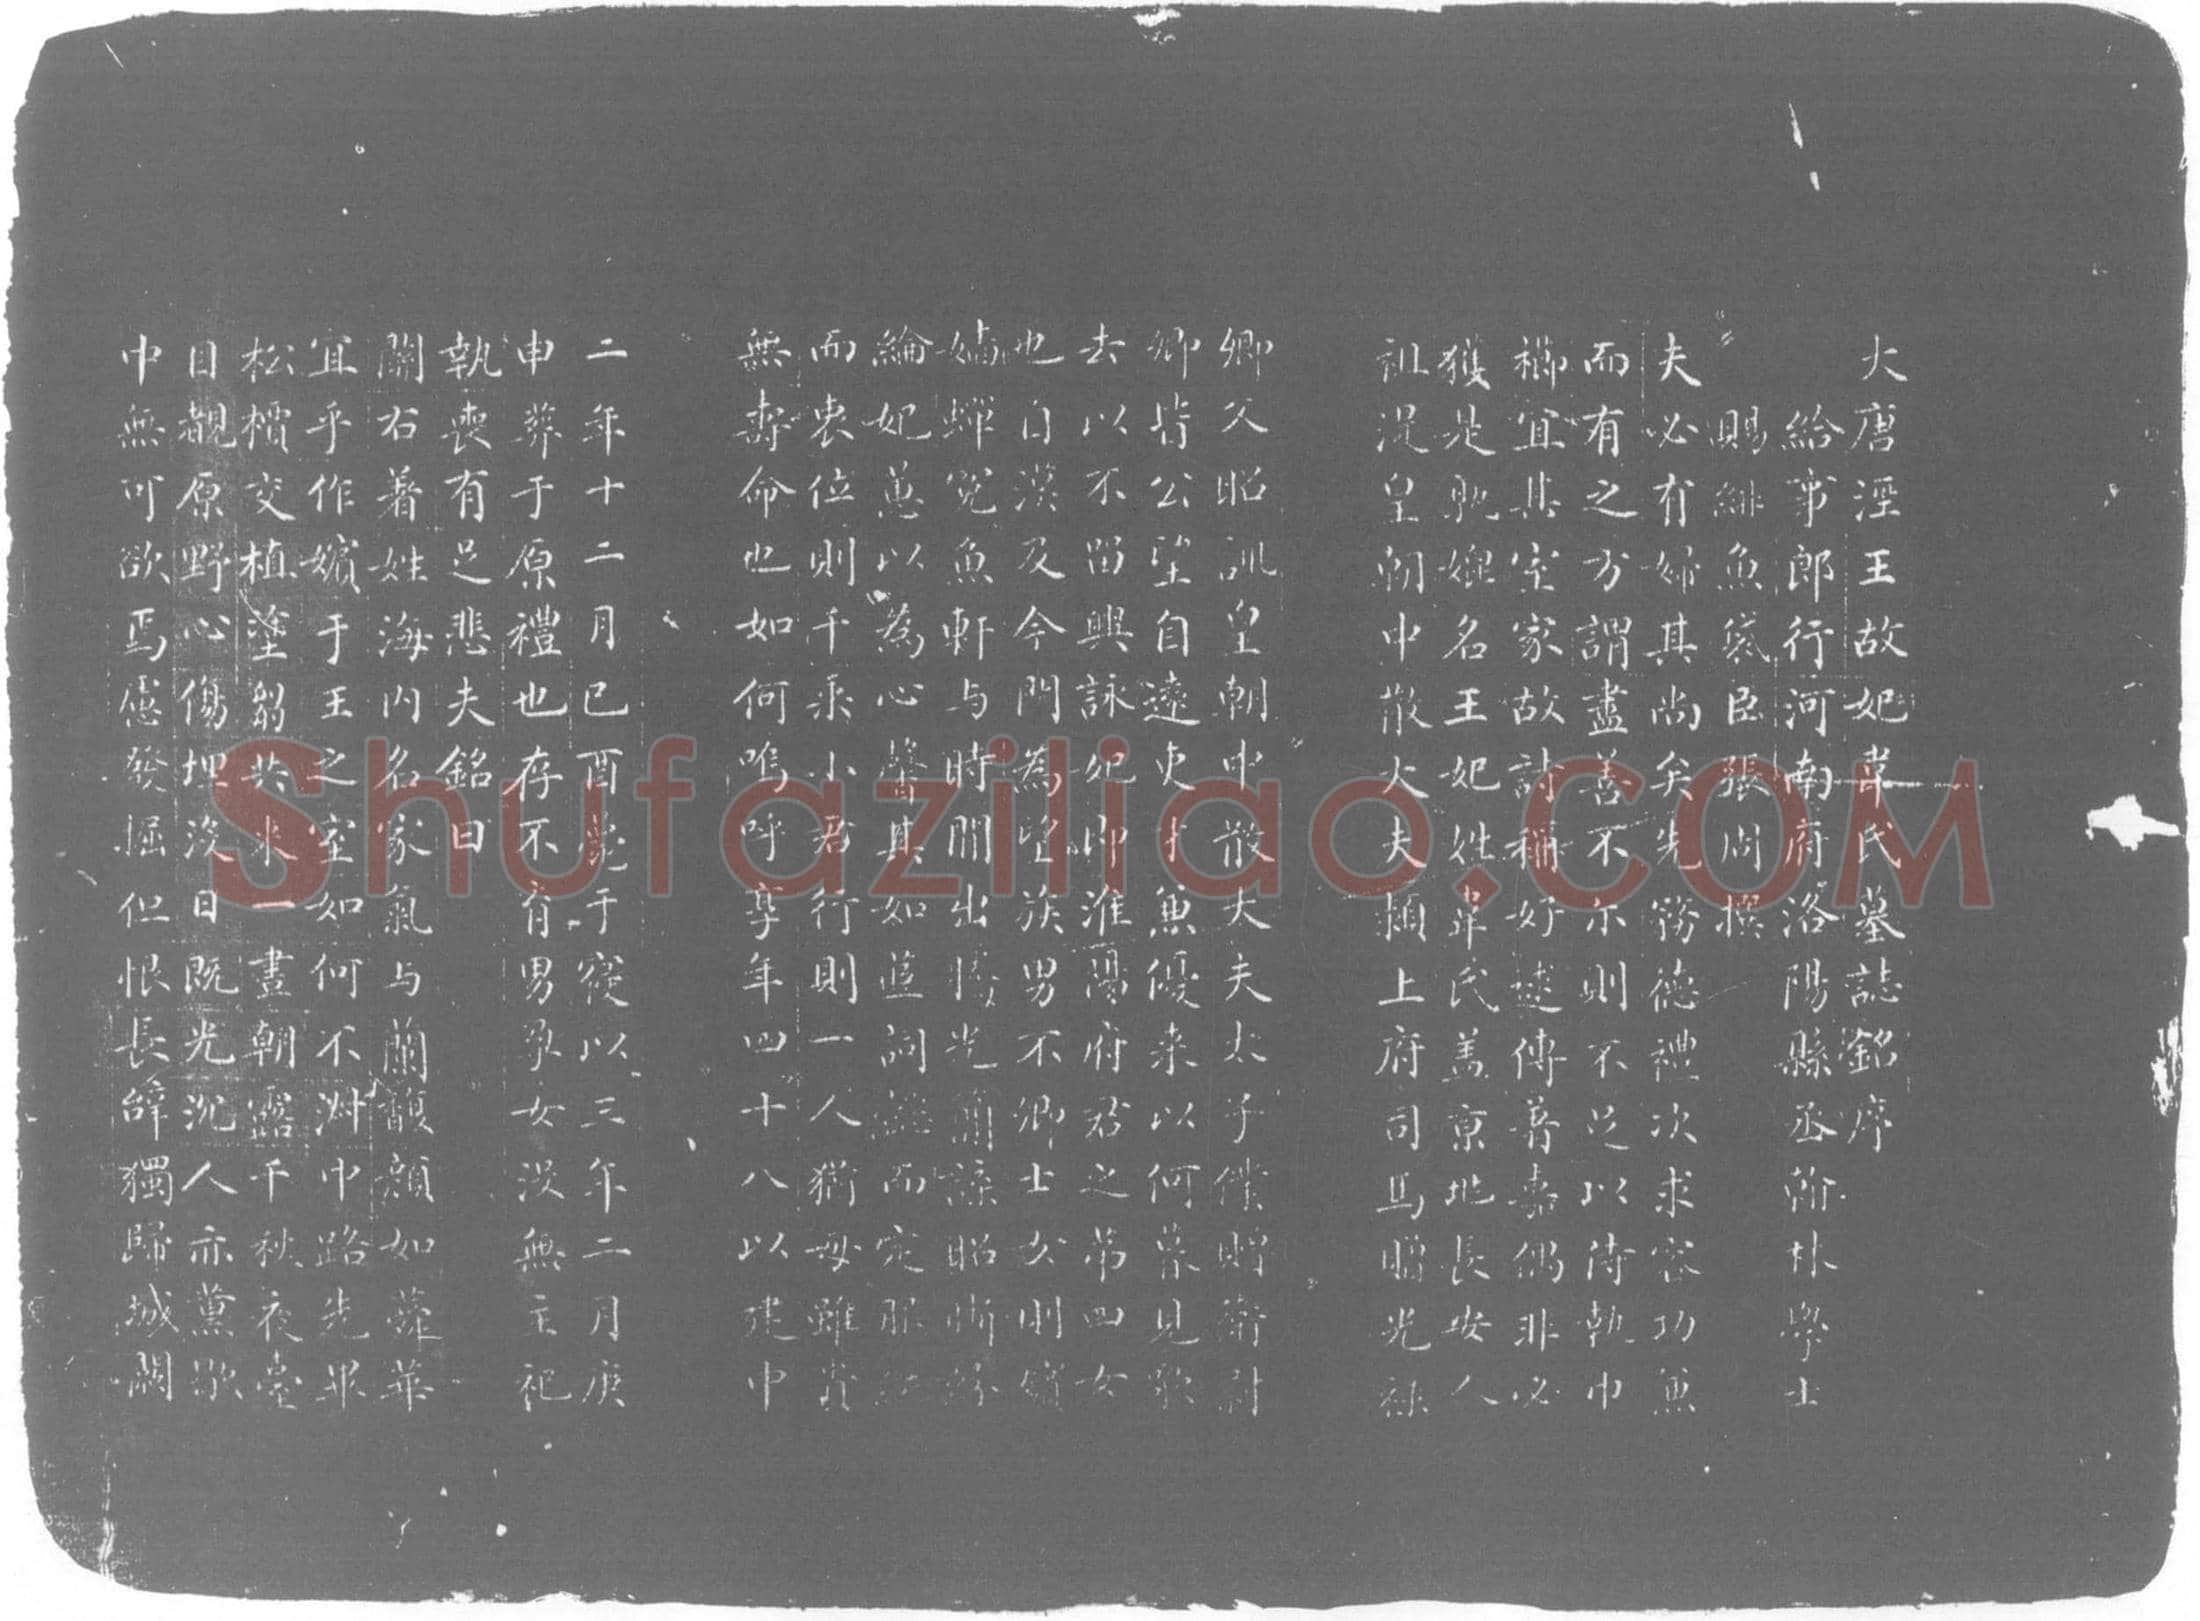 大唐涇王故妃韋氏墓誌銘序
給事郎行河南府洛陽縣丞翰林學士
賜緋魚袋臣張周撰
夫必有婦其尚矣先務德禮次求容功無
而有之方謂盡善不尒則不足以侍執巾
櫛宜其室家故詩稱好逑傳著嘉偶非必
獲是孰媲名王妃姓韋氏盖京地長安人
祖湜皇朝中散大夫潁上府司馬贈光祿
卿父昭訓皇朝中散大夫太子僕贈衛尉
卿皆公望自遠吏才兼優来以何暮見歌
去以不留興詠妃即淮陽府君之第四女
也自漢及今門為望族男不卿士女則嬪
嬙蟬冕魚軒与時間出騰光簡諜昭晣
綸妃蕙以為心馨其如蘭詞而定服
而衷位則千乘小君行則一人猶母雖貴
無壽命也如何嗚呼享年四十八以建中
二年十二月己酉薨于寢以三年二月庚
申葬于原禮也存不育男孕女沒無主祀
執喪有足悲夫銘曰
關右著姓海內名家氣与蘭馥顏如蕣華
宜乎作嬪于王之室如何不淑中路先畢
松檟交植塗芻共来一晝朝露千秋夜臺
目覩原野心傷埋沒日既光沉人亦薰歇
中無可欲焉慮發掘但恨長辭獨歸城闕
Shufaziliao.COM